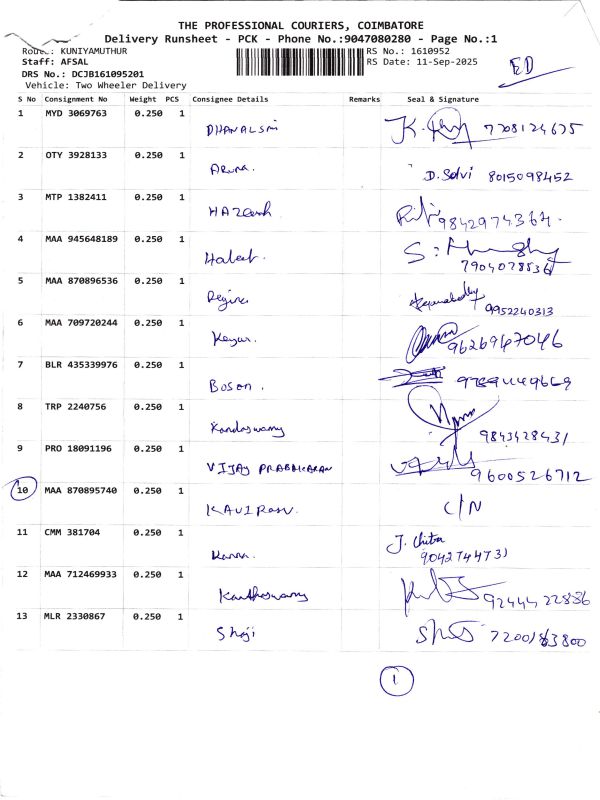 THE PROFESSIONAL COURIERS, COIMBATORE
Delivery Runsheet - PCK - Phone No.:9047080280 - Page No.:1
Route: KUNIYAMUTHUR RS No.: 1610952
Staff: AFSAL RS Date: 11-Sep-2025
DRS No.: DCJB161095201
Vehicle: Two Wheeler Delivery
ED
S No Consignment No Weight PCS Consignee Details Remarks Seal & Signature
1 MYD 3069763 0.250 1
DHANALSMI 7708124675
2 OTY 3928133 0.250 1
Aruna. D. Selvi 8015098452
3 MTP 1382411 0.250 1
9842974364.
4 MAA 945648189 0.250 1
7904078836
5 MAA 870896536 0.250 1
Regina 9952240313
6 MAA 709720244 0.250 1
9626967046
7 BLR 435339976 0.250 1
Boson.
8 TRP 2240756 0.250 1
Kandaswamy 9843428431
9 PRO 18091196 0.250 1
VIJAY PRABAKARAN 9600526712
10 MAA 870895740 0.250 1
C/N
11 CMM 381704 0.250 1
J. Chitra
9042744731
12 MAA 712469933 0.250 1
9244422886
13 MLR 2330867 0.250 1
Shaji
1